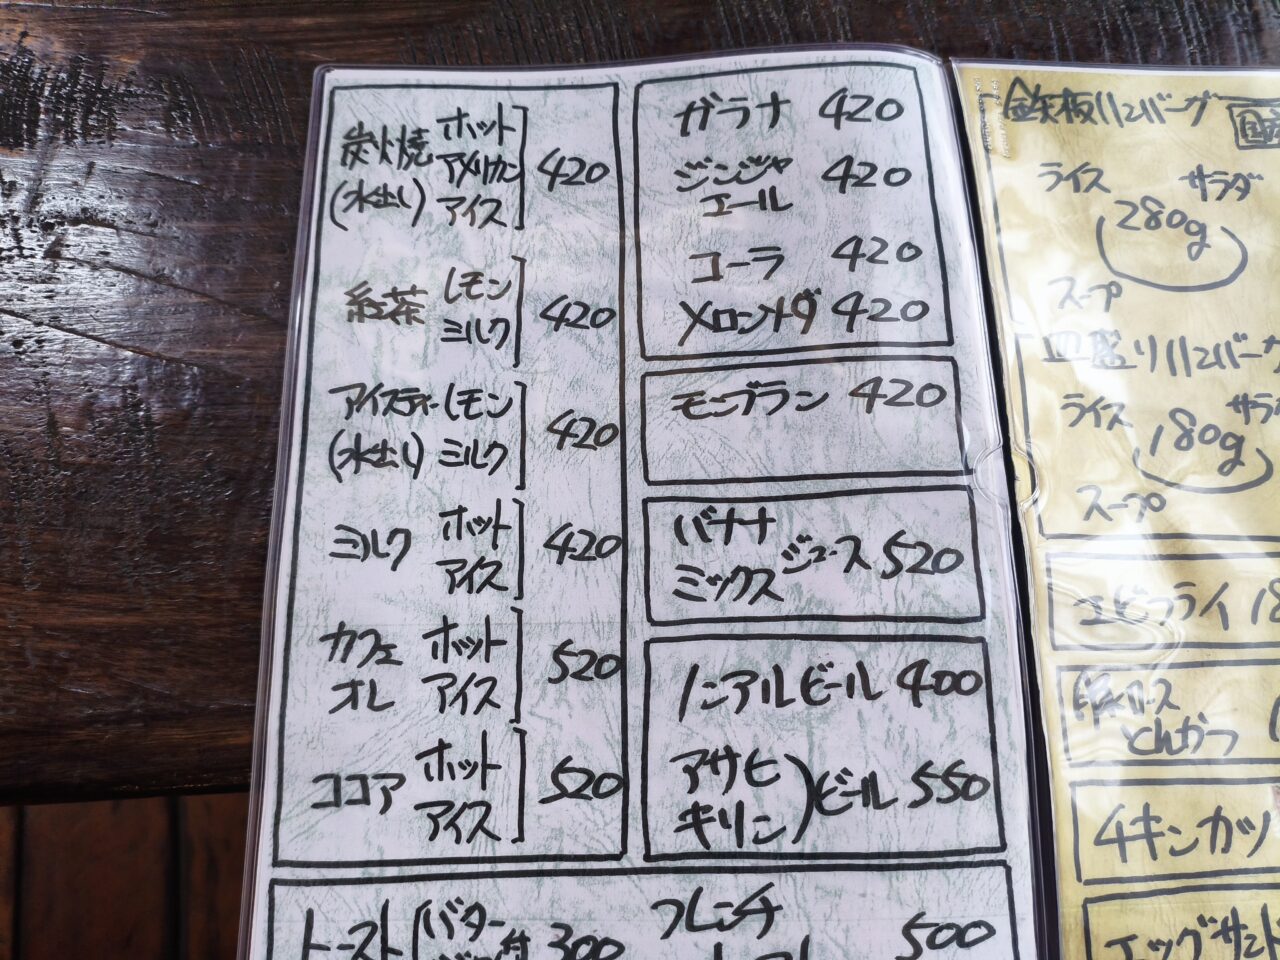 炭火焼 ホット
(水出し) アメリカン 420
アイス
紅茶 レモン
ミルク 420
アイスティー レモン
(水出し) ミルク 420
ミルク ホット
アイス 420
カフェ ホット
オレ アイス 520
ココア ホット
アイス 520
ガラナ 420
ジンジャ 420
エール
コーラ 420
メロンソーダ 420
モンブラン 420
バナナ
ミックス ジュース 520
ノンアルビール 400
アサヒ
キリン ビール 550
トースト (バター
付 300
フレンチ
500
鉄板ハンバーグ
ライス サラダ
280g
スープ
皿盛りハンバーグ
ライス サラダ
180g
スープ
エビフライ
とんかつ
チキンカツ
エッグサンド